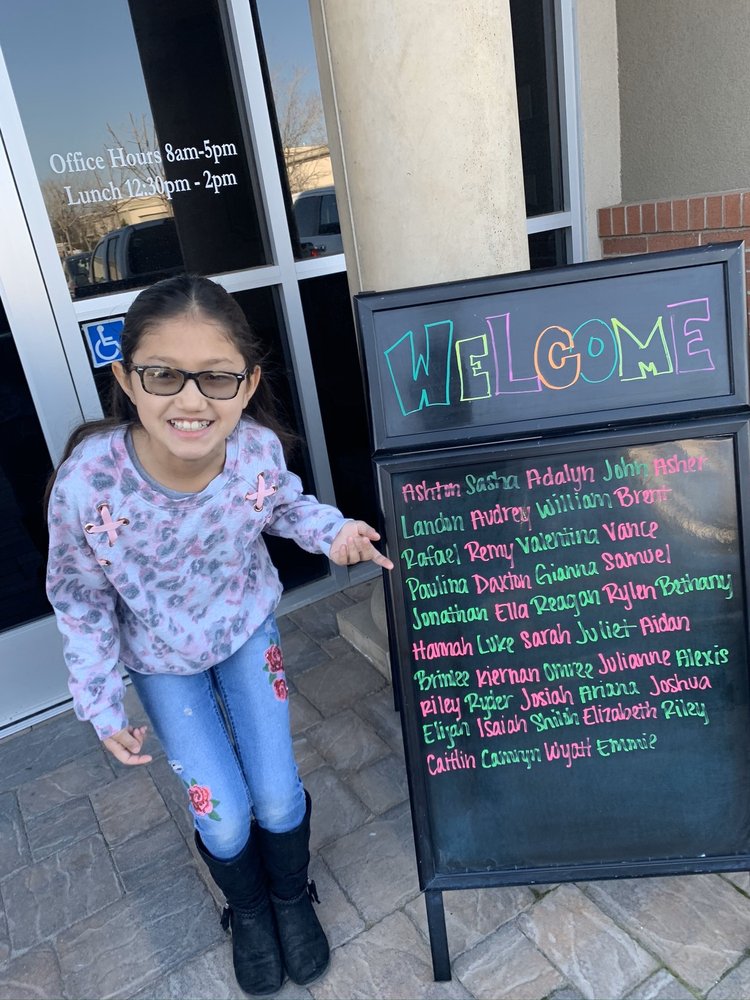 Office Hours 8am-5pm
Lunch 12:30pm - 2pm
WELCOME
Ashton Sasha Adalyn John Asher
Landon Audrey William Brent
Rafael Remy Valentina Vance
Paulina Daxton Gianna Samuel
Jonathan Ella Reagan Rylen Bethany
Hannah Luke Sarah Juliet Aidan
Brinlee Kiernan Omree Julianne Alexis
Riley Ryder Josiah Ariana Joshua
Elijah Isaiah Shiloh Elizabeth Riley
Caitlin Camryn Wyatt Emmie